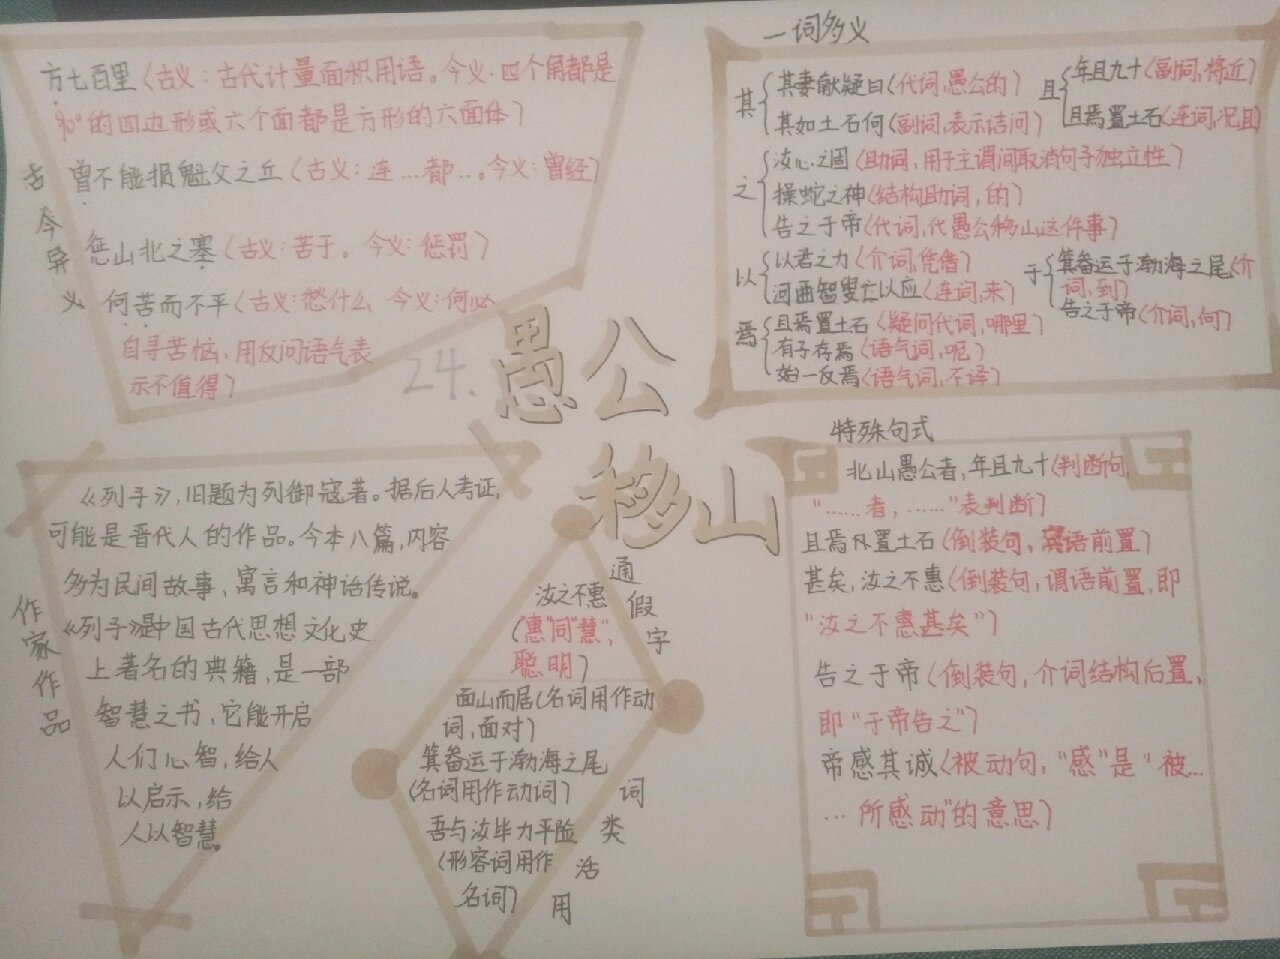 方七百里（古义：古代计量面积用语。今义：四个角都是
90°的四边形或六个面都是方形的六面体）
曾不能损魁父之丘（古义：连…都…。今义：曾经）
惩山北之塞（古义：苦于。今义：惩罚）
何苦而不平（古义：愁什么 今义：何必
自寻苦恼，用反问语气表
示不值得）
古今异义
一词多义
其
其妻献疑曰（代词，愚公的）
其如土石何（副词，表示诘问）
且
年且九十（副词，将近）
且焉置土石（连词，况且）
之
汝心之固（助词，用于主谓间取消句子独立性）
操蛇之神（结构助词，的）
告之于帝（代词，代愚公移山这件事）
以
以君之力（介词，凭借）
河曲智叟亡以应（连词，来）
于
箕畚运于渤海之尾（介
词，到）
告之于帝（介词，向）
焉
且焉置土石（疑问代词，哪里）
有子存焉（语气词，呢）
始一反焉（语气词，不译）
24.愚公
移山
作家作品
《列子》，旧题为列御寇著。据后人考证，
可能是晋代人的作品。今本八篇，内容
多为民间故事、寓言和神话传说。
《列子》是中国古代思想文化史
上著名的典籍，是一部
智慧之书，它能开启
人们心智，给人
以启示，给
人以智慧。
通假字
汝之不惠
（“惠”同“慧”，
聪明）
面山而居（名词用作动
词，面对）
箕畚运于渤海之尾
（名词用作动词）
吾与汝毕力平险
（形容词用作
名词）
词类活用
特殊句式
北山愚公者，年且九十（判断句，
“……者，……”表判断）
且焉置土石（倒装句，宾语前置）
甚矣，汝之不惠（倒装句，谓语前置，即
“汝之不惠甚矣”）
告之于帝（倒装句，介词结构后置，
即“于帝告之”）
帝感其诚（被动句，“感”是“被…
…所感动”的意思）